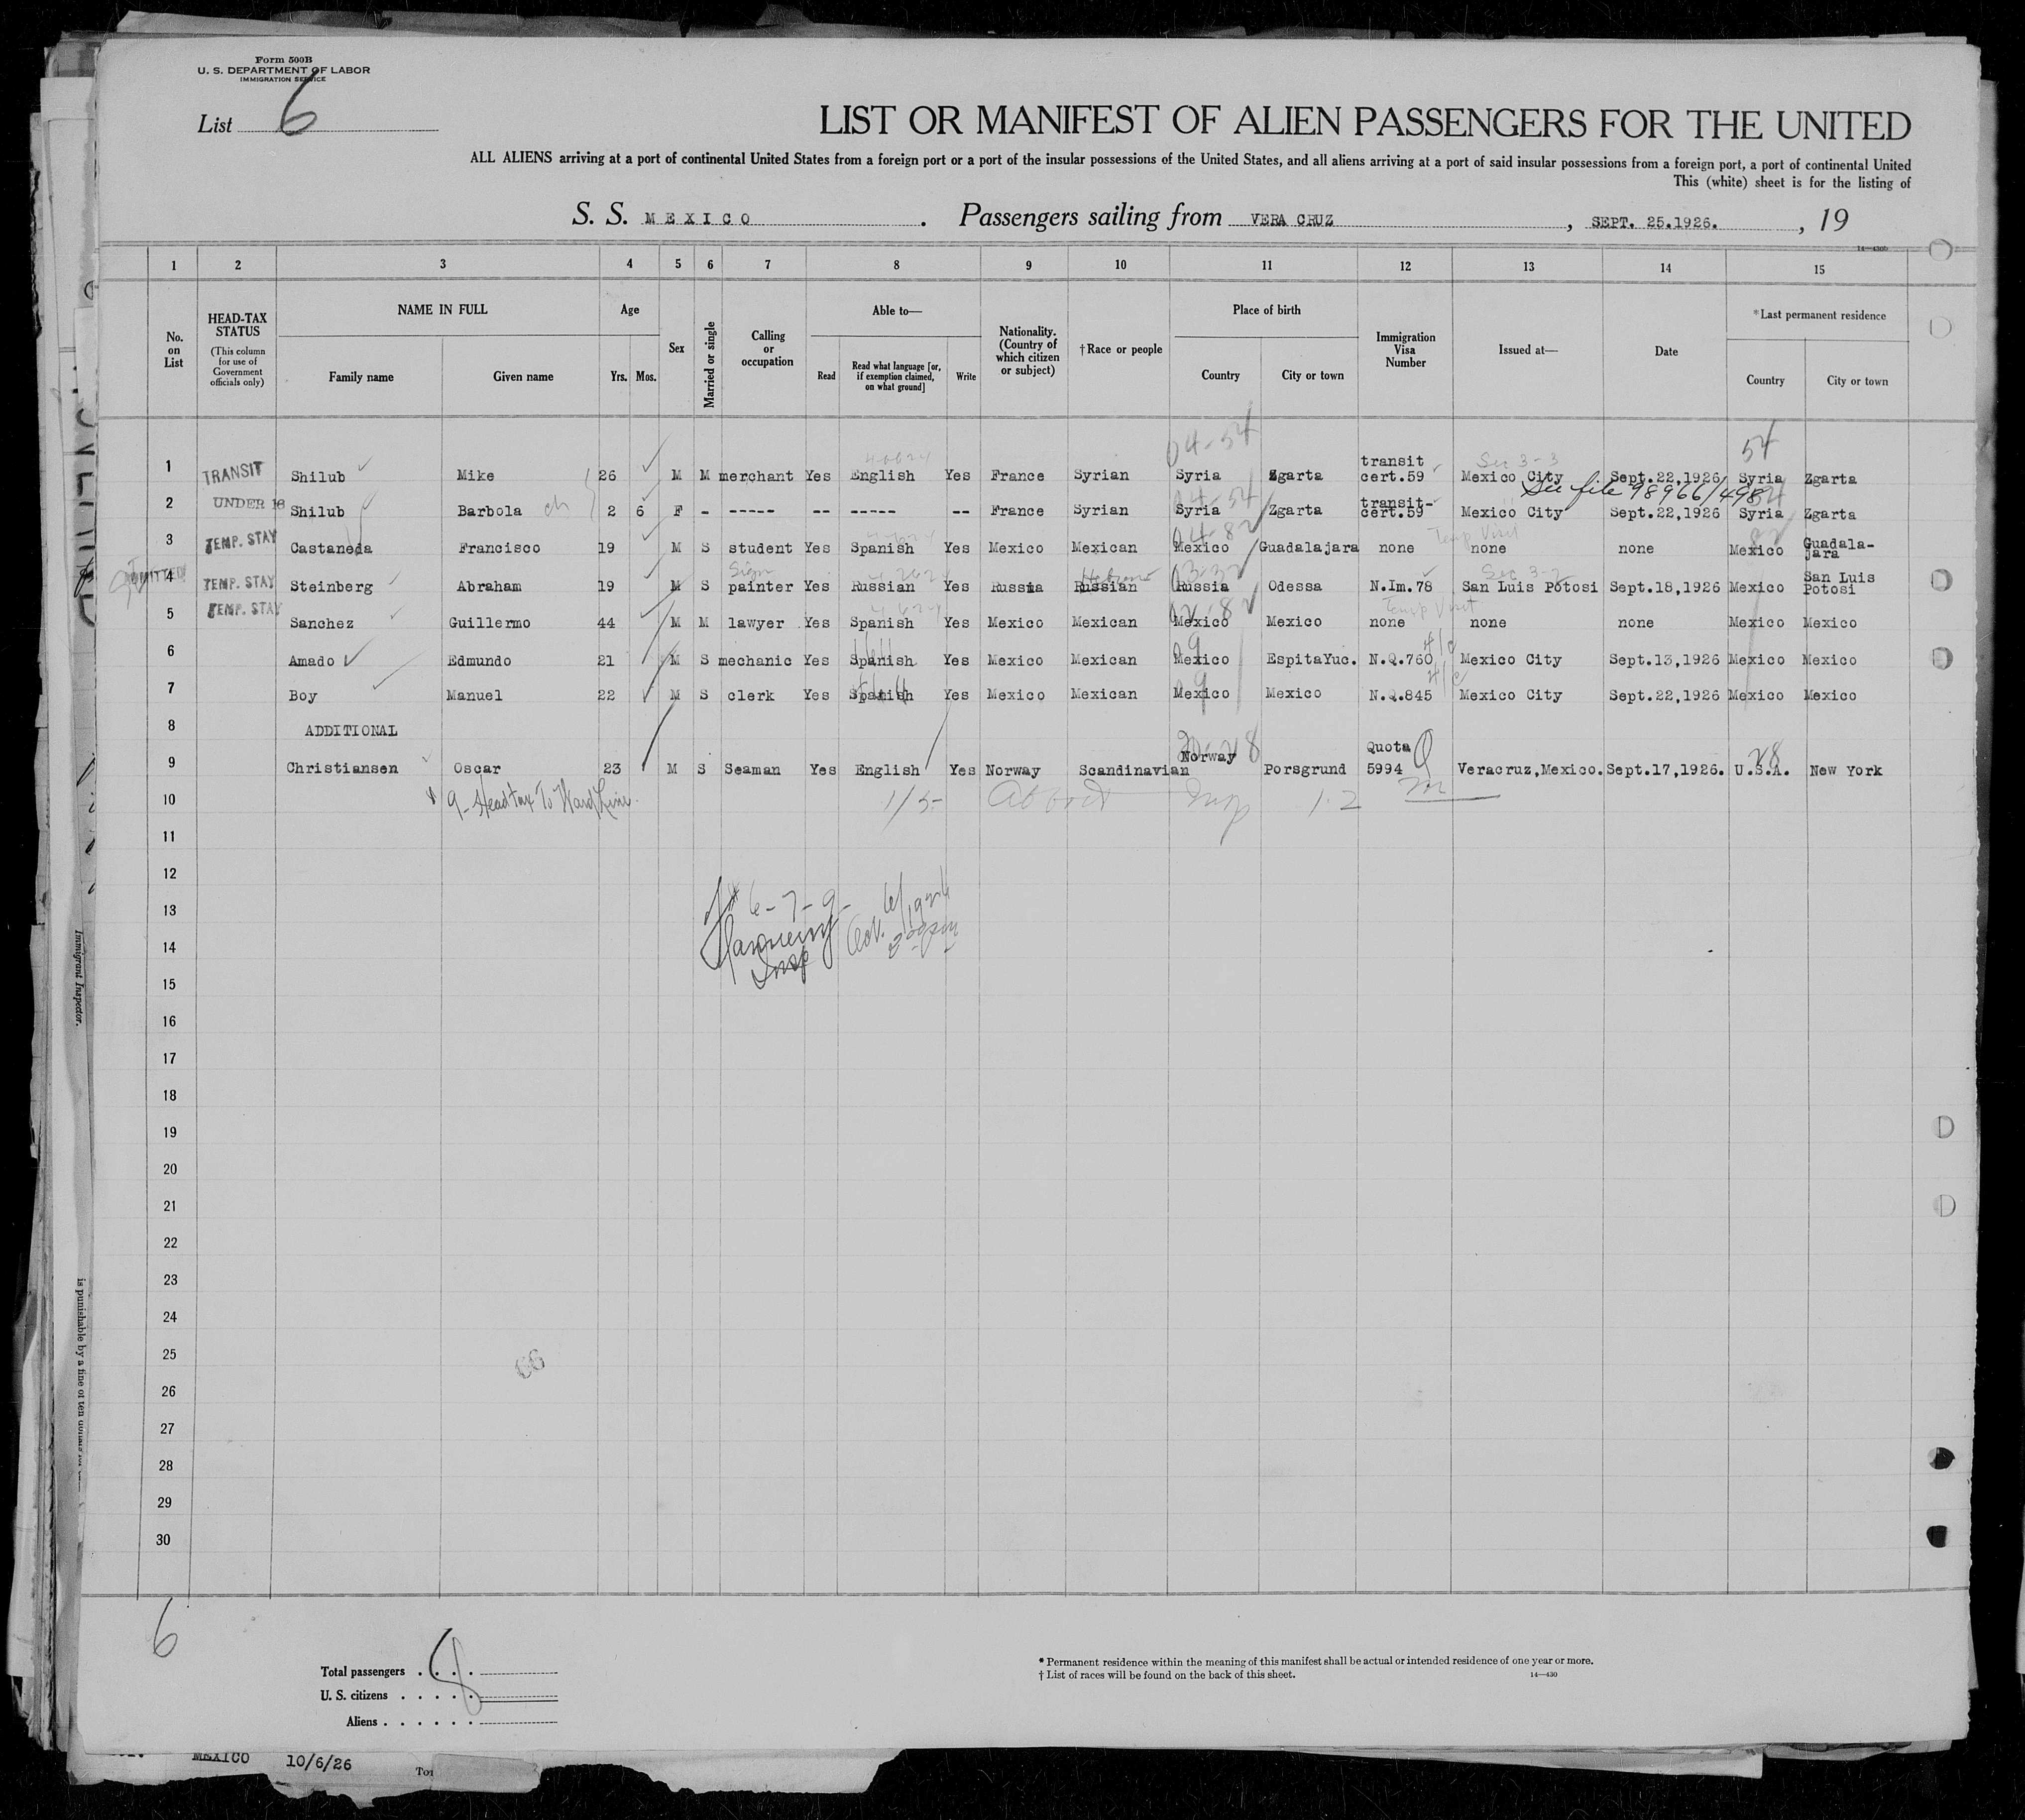 Form 500B
U. S. DEPARTMENT OF LABOR
IMMIGRATION SERVICE
List 6
LIST OR MANIFEST OF ALIEN PASSENGERS FOR THE UNITED
ALL ALIENS arriving at a port of continental United States from a foreign port or a port of the insular possessions of the United States, and all aliens arriving at a port of said insular possessions from a foreign port, a port of continental United
This (white) sheet is for the listing of
S. S. MEXICO. Passengers sailing from VERA CRUZ, SEPT. 25.1926., 19
14—430b
1 2 3 4 5 6 7 8 9 10 11 12 13 14 15
No. on List
HEAD-TAX STATUS (This column for use of Government officials only)
NAME IN FULL Family name Given name
Age Yrs. Mos.
Sex
Married or single
Calling or occupation
Able to— Read Read what language [or, if exemption claimed, on what ground] Write
Nationality. (Country of which citizen or subject)
†Race or people
Place of birth Country City or town
Immigration Visa Number
Issued at—
Date
*Last permanent residence Country City or town
04-54 54
1 TRANSIT Shilub Mike 26 M M merchant Yes English Yes France Syrian Syria Zgarta transit cert.59 Sec 3-3 Mexico City Sept.22,1926 Syria Zgarta
See file 98966/498
2 UNDER 16 Shilub Barbola ch 2 6 F - ----- -- ----- -- France Syrian 04-54 Syria Zgarta transit- cert.59 Mexico City Sept.22,1926 Syria Zgarta
3 TEMP. STAY Castaneda Francisco 19 M S student Yes Spanish Yes Mexico Mexican 04-82 Mexico Guadalajara none Temp Visit none none Mexico Guadala-jara
4 ADMITTED TEMP. STAY Steinberg Abraham 19 M S Sign painter Yes Russian Yes Russia Hebrew Russian Russia Odessa N.Im.78 Sec 3-2 San Luis Potosi Sept.18,1926 Mexico San Luis Potosi
5 TEMP. STAY Sanchez Guillermo 44 M M lawyer Yes Spanish Yes Mexico Mexican Mexico Mexico none Temp Visit none none Mexico Mexico
6 Amado Edmundo 21 M S mechanic Yes Spanish Yes Mexico Mexican Mexico EspitaYuc. N.Q.760 4/c Mexico City Sept.13,1926 Mexico Mexico
7 Boy Manuel 22 M S clerk Yes Spanish Yes Mexico Mexican Mexico Mexico N.Q.845 4/c Mexico City Sept.22,1926 Mexico Mexico
8 ADDITIONAL
9 Christiansen Oscar 23 M S Seaman Yes English Yes Norway Scandinavian Norway Porsgrund Quota 5994 Veracruz,Mexico. Sept.17,1926. 28 U.S.A. New York
10 9- Head tax To Ward Line. 1/5- Insp 12
11
12
13 6-7-9
14 Oct. 6/1926
Insp
15
16
17
18
19
20
21
22
23
24
25
26
27
28
29
30
6
Total passengers
U. S. citizens
Aliens
8
* Permanent residence within the meaning of this manifest shall be actual or intended residence of one year or more.
† List of races will be found on the back of this sheet. 14—430
MEXICO 10/6/26
Immigrant Inspector.